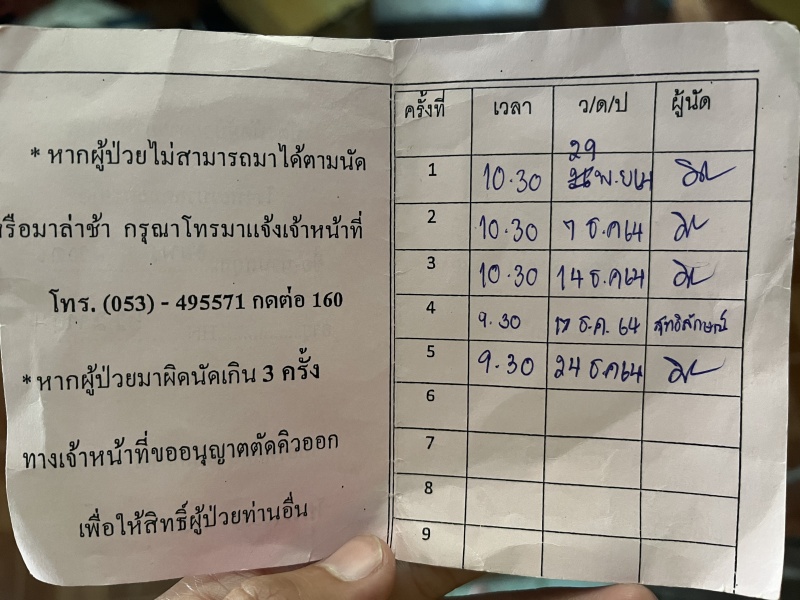 * หากผู้ป่วยไม่สามารถมาได้ตามนัด
หรือมาล่าช้า กรุณาโทรมาแจ้งเจ้าหน้าที่
โทร. (053) - 495571 กดต่อ 160
* หากผู้ป่วยมาผิดนัดเกิน 3 ครั้ง
ทางเจ้าหน้าที่ขออนุญาตตัดคิวออก
เพื่อให้สิทธิ์ผู้ป่วยท่านอื่น
ครั้งที่ เวลา ว/ด/ป ผู้นัด
1 10.30 29 พ.ย 64
2 10.30 7 ธ.ค 64
3 10.30 14 ธ.ค 64
4 9.30 17 ธ.ค. 64 สุทธิลักษณ์
5 9.30 24 ธ.ค 64
6
7
8
9